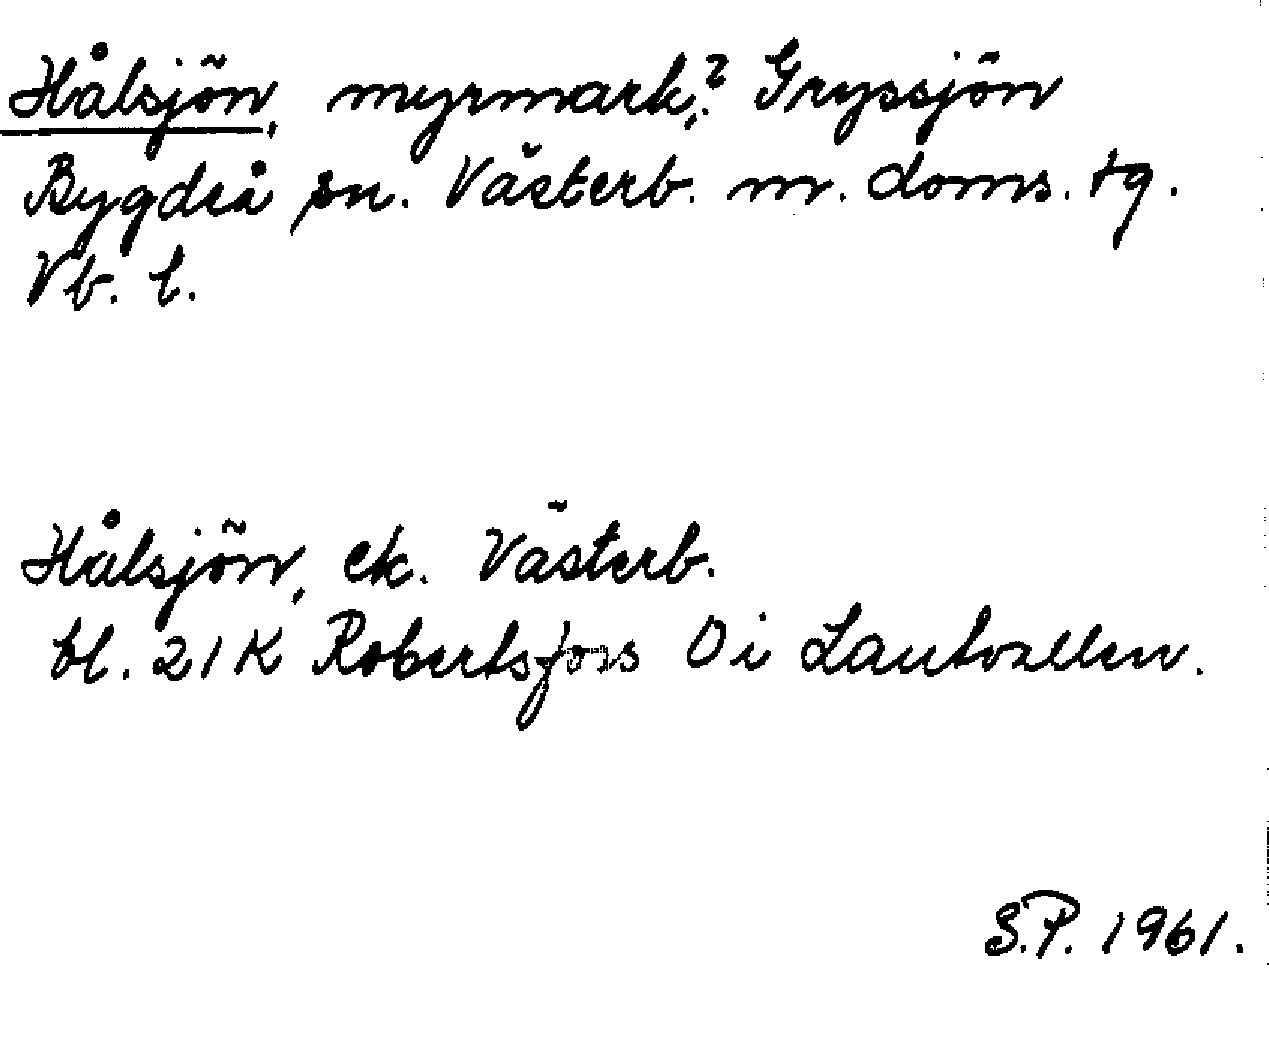 Hålsjön, myrmark,? Gryssjön
Bygdeå sn. Västerb. n. doms. tg.
Vb. l.
Hålsjön, ek. Västerb.
bl. 21K Robertsfors 0i Lautvallen.
S.P. 1961.